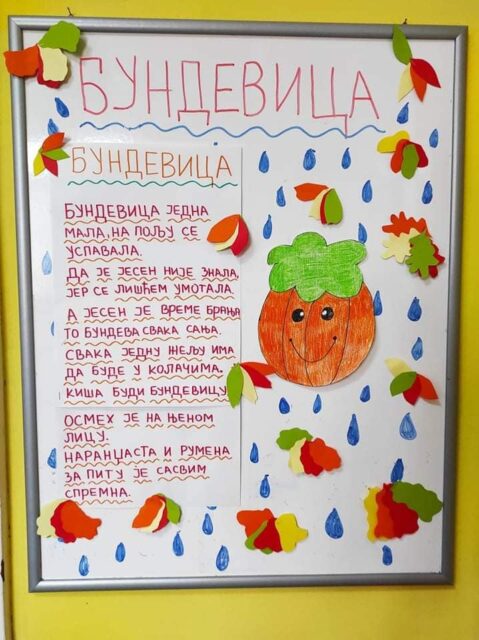 БУНДЕВИЦА
БУНДЕВИЦА
БУНДЕВИЦА ЈЕДНА
МАЛА, НА ПОЉУ СЕ
УСПАВАЛА.
ДА ЈЕ ЈЕСЕН НИЈЕ ЗНАЛА,
ЈЕР СЕ ЛИШЋЕМ УМОТАЛА.
А ЈЕСЕН ЈЕ ВРЕМЕ БРАЊА
ТО БУНДЕВА СВАКА САЊА.
СВАКА ЈЕДНУ ЖЕЉУ ИМА
ДА БУДЕ У КОЛАЧИМА.
КИША БУДИ БУНДЕВИЦУ,
ОСМЕХ ЈЕ НА ЊЕНОМ
ЛИЦУ.
НАРАНЏАСТА И РУМЕНА
ЗА ПИТУ ЈЕ САСВИМ
СПРЕМНА.